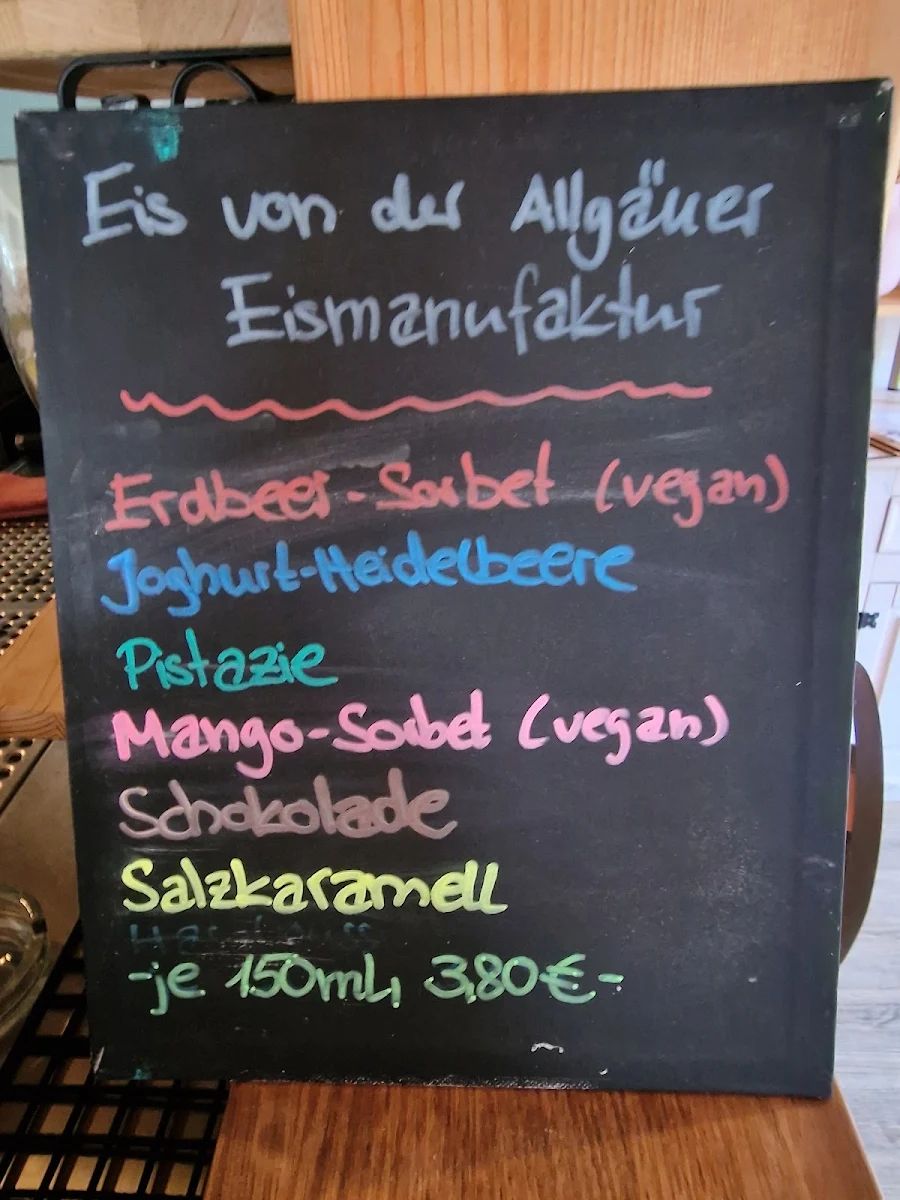 Eis von der Allgäuer
Eismanufaktur
Erdbeer-Sorbet (vegan)
Joghurt-Heidelbeere
Pistazie
Mango-Sorbet (vegan)
Schokolade
Salzkaramell
-je 150ml, 3,80€-